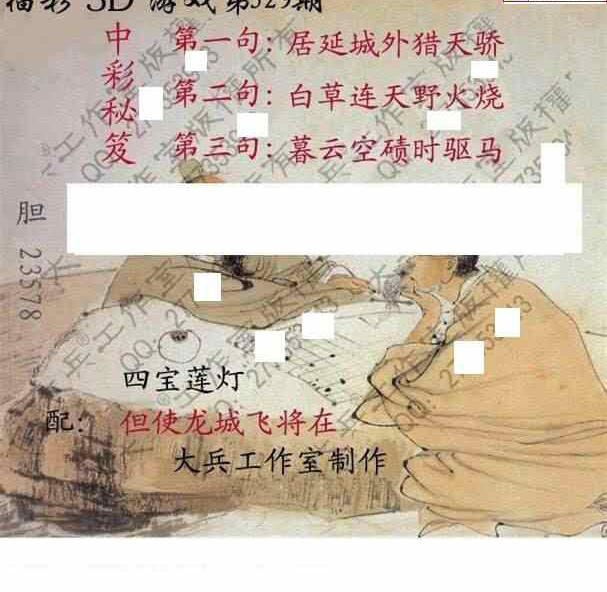 福彩 3D 游戏 第329期
中彩秘笈
第一句：居延城外猎天骄
第二句：白草连天野火烧
第三句：暮云空碛时驱马
胆 23578
四宝莲灯
配： 但使龙城飞将在
大兵工作室制作